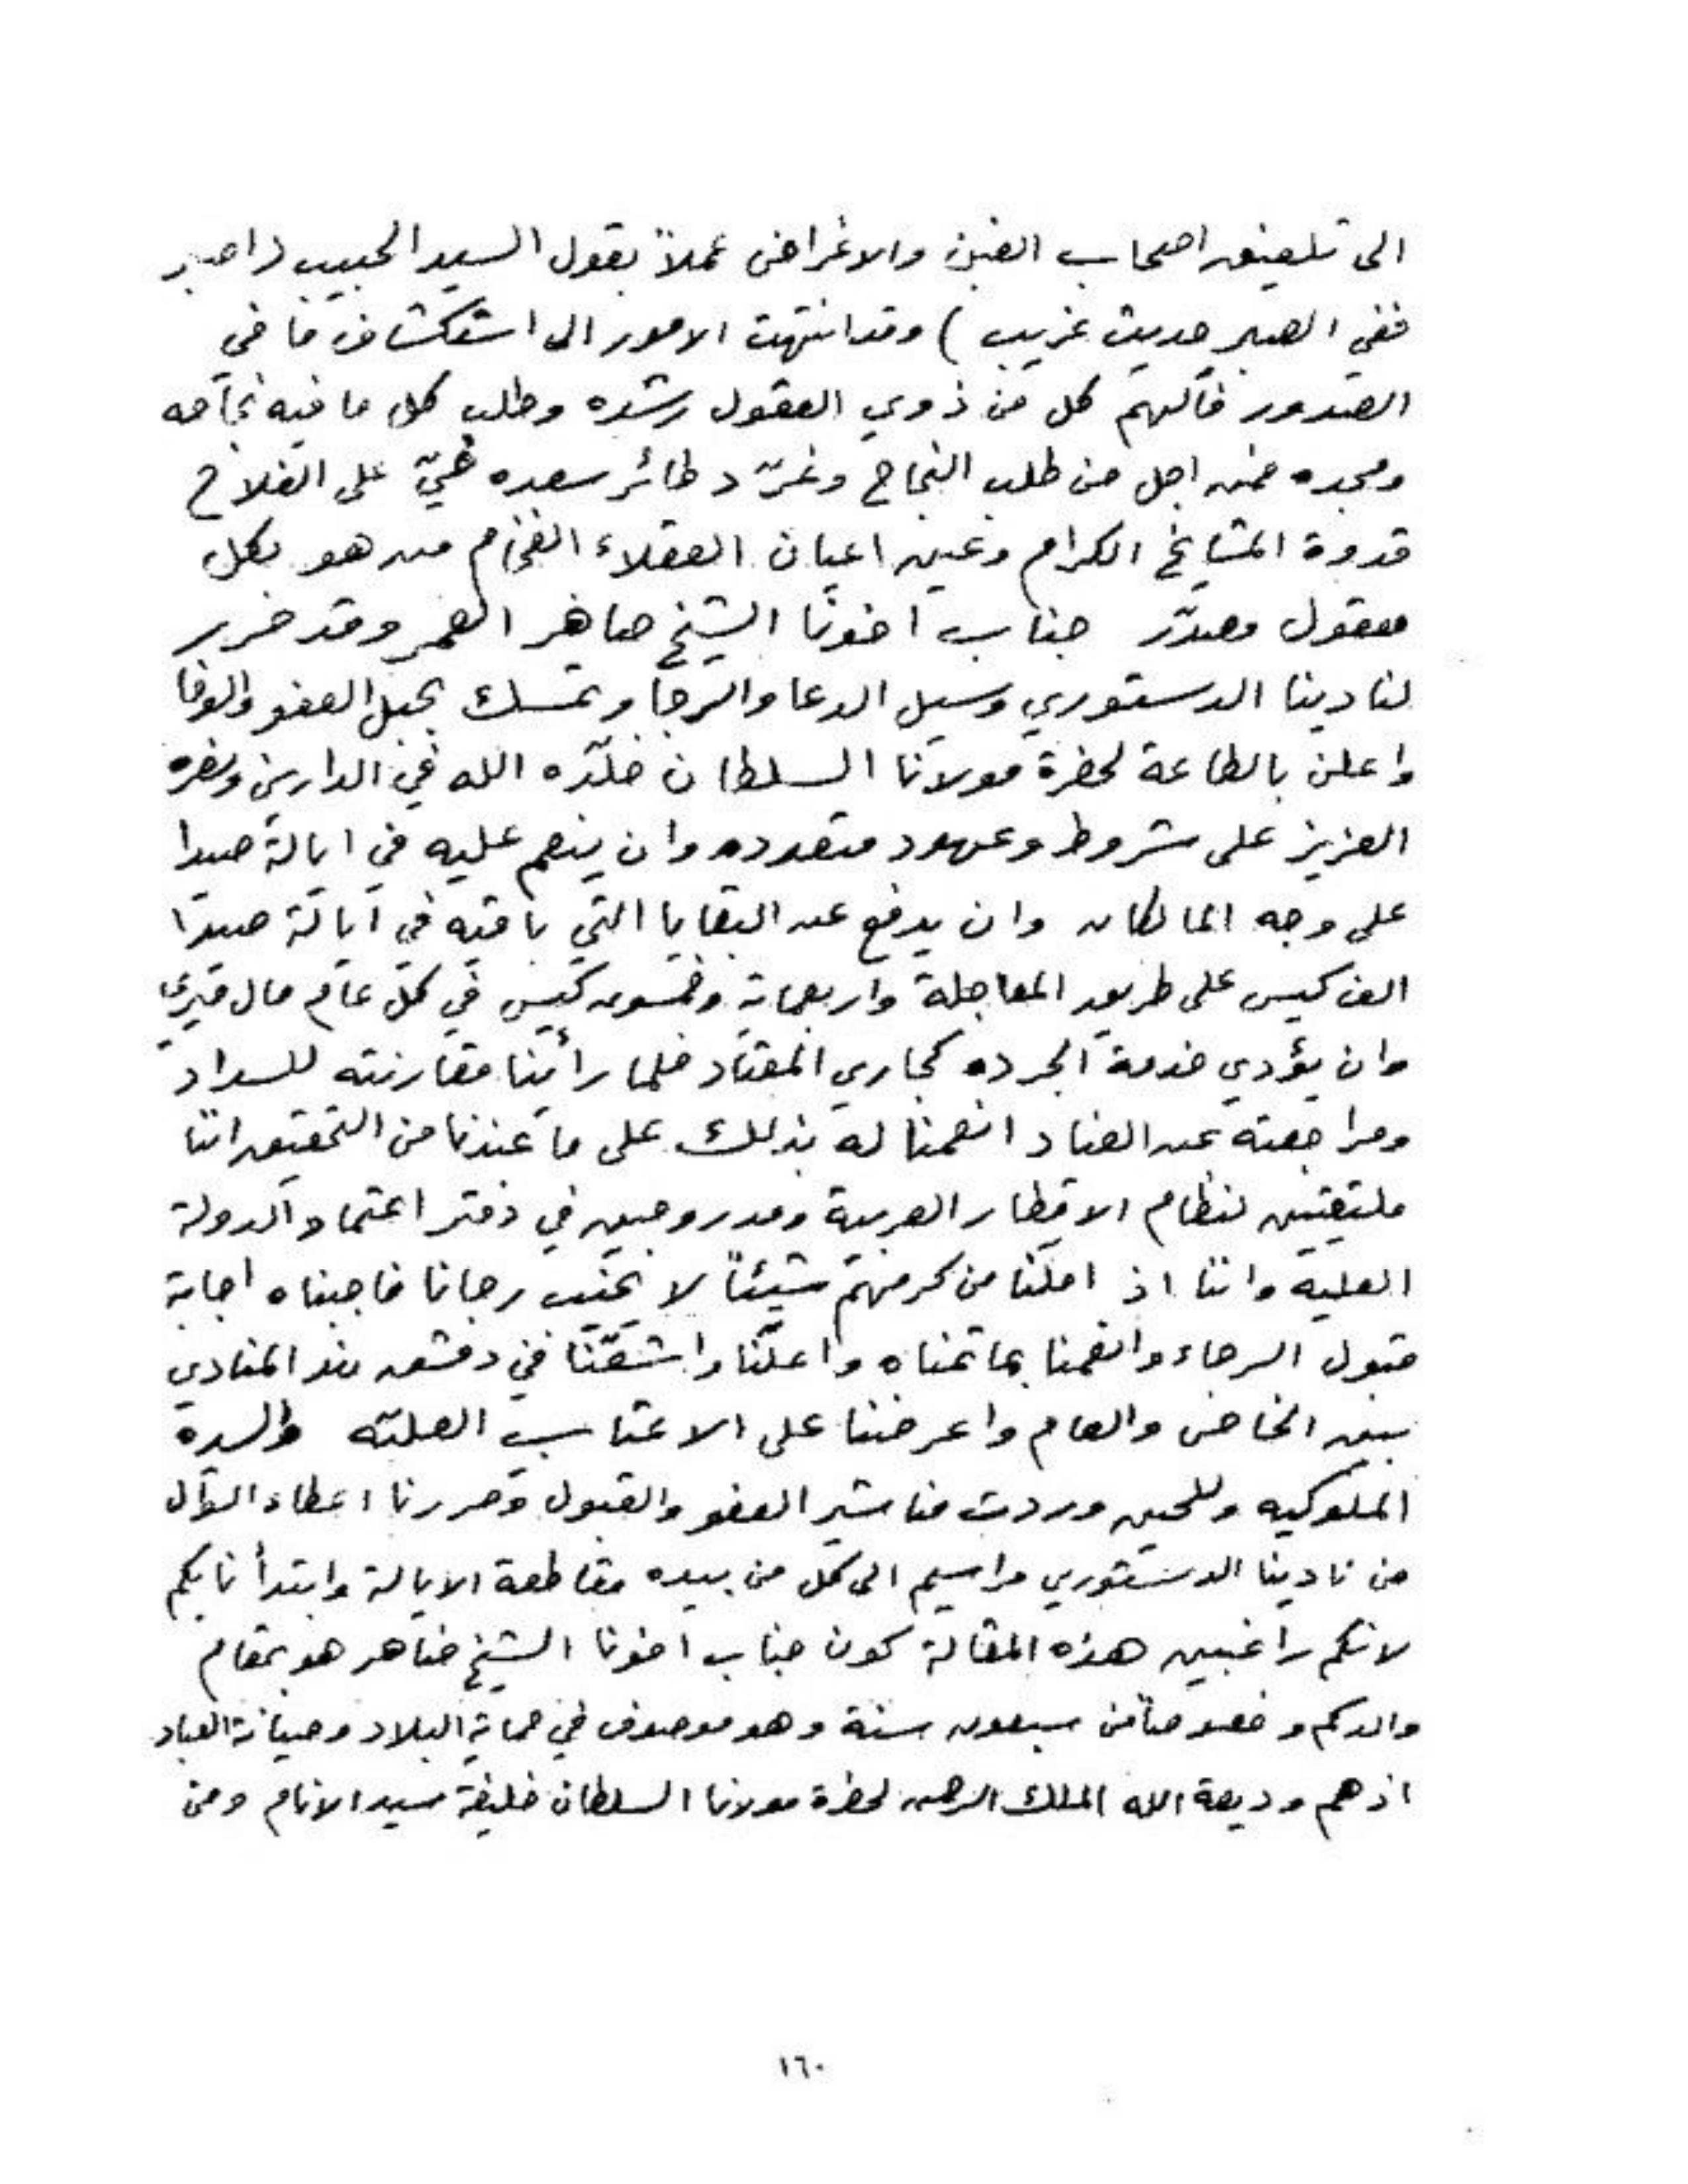 الى تلفيق اصحاب الفتن والاغراض عملاً بقول السيد الحبيب (اصبر
ففي الصبر حديث غريب) وقد انتهت الامور الى استكشاف ما في
الصدور فالهم كل من ذوي العقول رشده وطلب كل ما فيه نجاحه
ومجده فمن اجل من طلب النجاح وغرّد طائر سعده حيّ على الفلاح
قدوة المشايخ الكرام وعين اعيان العقلاء الفخام من هو بكل
معقول مصدّر جناب اخونا الشيخ ضاهر العمر وقد حرر
لنادينا الدستوري وسيل الدعا والرجا وتمسك بحبل العفو والوفا
واعلن بالطاعة لحضرة مولانا السلطان خلّده الله في الدارين ونصره
العزيز على شروط وعهود متعدده وان ينعم عليه في ايالة صيدا
على وجه المالكان وان يدفع عن البقايا التي باقيه في ايالة صيدا
الف كيس على طريق المعاجلة واربعماية وخمسون كيس في كل عام مال ميري
وان يؤدي خدمة الجرده كجاري المعتاد فلما رأينا مقارنته للسداد
ومراجعته عن العناد انعمنا له بذلك على ما عندنا من التحقيق اننا
ملتفتين لنظام الاقطار العربية ومدروجين في دفتر اعتماد الدولة
العلية واننا اذ املنا من كرمهم شيئاً لا يخيّب رجانا فاجبناه اجابة
قبول الرجاء وانعمنا بما تمناه واعلنّا واشعنّا في دمشق بند المنادي
بين الخاص والعام واعرضنا على الاعتاب العليّه والسدة
الملوكيه وللحين وردت مناشير العفو والقبول وحررنا اعطاء النوّال
من نادينا الدستوري مراسيم الى كل من بيده مقاطعة الايالة وابتدأنا بكم
لانكم راغبين هذه المقالة كون جناب اخونا الشيخ ضاهر هو بمقام
والدكم وخصوصاً من سبعون سنة وهو موصوف في حماية البلاد وصيانة العباد
اذ هم وديعة الله الملك الرحمن لحضرة مولانا السلطان خليفة سيد الانام ومن
١٦٠